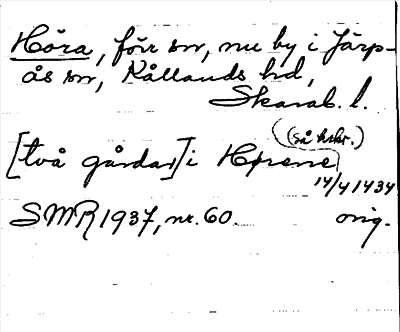 Höra, förr sn, nu by i Järp-
ås sn, Kållands hd,
Skarab. l.
(så hskr.)
[två gårdar] i Hørene
14/4 1434
SMR 1937, nr. 60. orig.